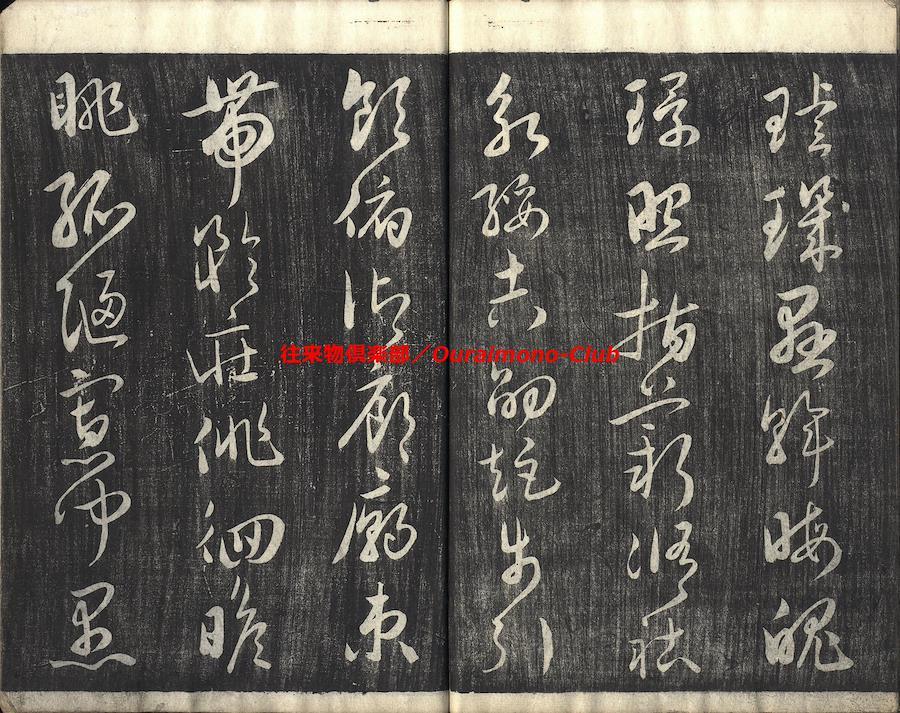 璇璣懸斡晦魄
環照指薪修祜
永綏吉劭矩步引
領俯仰廊廟束
帶矜莊徘徊瞻
眺孤陋寡聞愚
往来物倶楽部／Ouraimono-Club